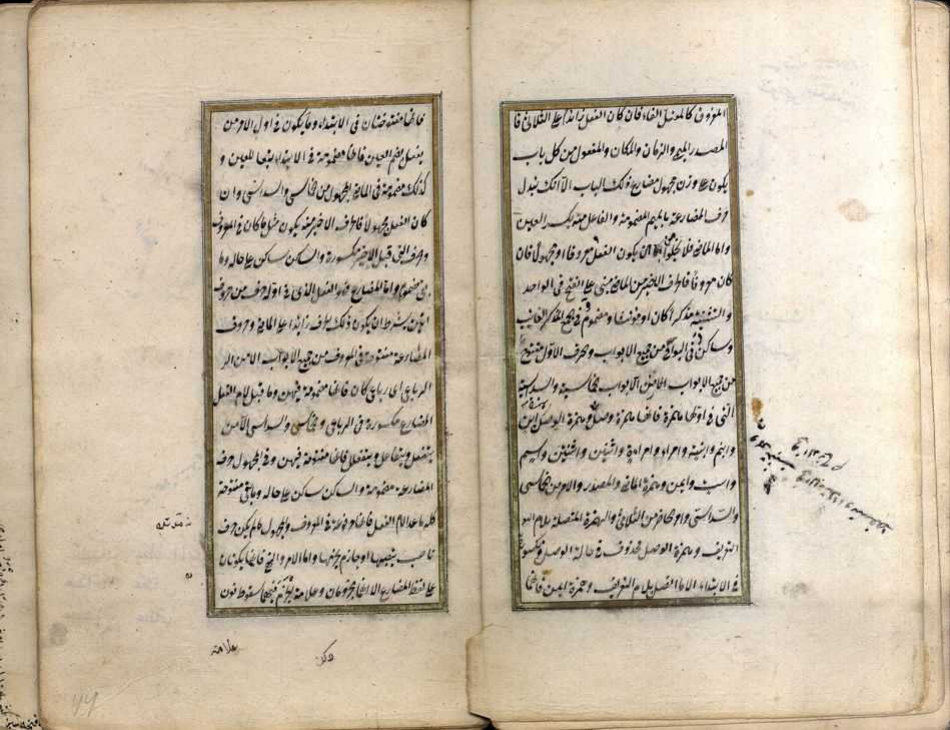 المعروف كالمعتل الفاء فان كان الفعل زائدا على الثلاثي فا
المصدر الميمى والزمان والمكان والمفعول من كل باب
يكون على وزن مجهول مضارع ذلك الباب الا انك تبدل
حرف المضارعة بالميم المضمومة والفاعل منه بكسر العين
واما الماضى فلا يخلوا ان يكون الفعل معروفا او مجهولا فان
كان معروفا فالحرف الاخير من الماضى مبنى على الفتح فى الواحد
والتثنية مذكرا كان او مؤنثا ومضموم فى جمع المذكر الغائب
وساكن فى البواقى من جميع الابواب والحرف الاول مفتوح
من جميع الابواب الا من الابواب الخماسية والسداسية
التى فى اولها همزة فانها همزة وصل وهمزة الوصل ابن
وابنم وابنة وامرء وامراءة واثنين واثنتين واسم
واست وايمن وهمزة الماضى والمصدر والامر من الخماسى
والسداسى وامر الحاضر من الثلاثى والهمزة المتصلة بلام الـ
التعريف وهمزة الوصل محذوف فى حالة الوصل ومكسورة
فى الابتداء الا ما اتصل بلام التعريف وهمزة ايمن فانهما
فانهما مفتوحتان فى الابتداء وما يكون فى اول الامر من
يفعل بضم العين فانها مضمومة فى الابتداء تبعا للعين و
كذلك مضمومة فى الماضى المجهول من الخماسى والسداسى وان
كان الفعل مجهولا فالحرف الاخير منه يكون مثل ما كان فى المعروف
والحرف التى قبل الاخير مكسورة والساكن ساكن على حاله وما
بقى مضموم واما المضارع فهو الفعل الذى فى اوله حرف من حروف
اتين بشرط ان يكون ذلك الحرف زائدا على الماضى وحروف
المضارعة مفتوحة فى المعروف من جميع الابواب الا من الر
الرباعى اى رباعى كان فانها مضمومة فيهن وما قبل لام الفعل
المضارع مكسورة فى الرباعى والخماسى والسداسى الا من
يتفعل ويتفاعل ويتفعلل فانها مفتوحة فيهن وفى المجهول حرف
المضارعة مضمومة والساكن ساكن على حاله وما بقى مفتوحة
كله ما عدا لام الفعل فانها مرفوعة فى المعروف والمجهول ما لم يكن حرف
ناصب ينصبها او جازم يجزمها واما الامر والنهى فانهما يكونان
على لفظ المضارع الا انهما مجزومان وعلامة الجزم فيهما سقوط نون
علامة